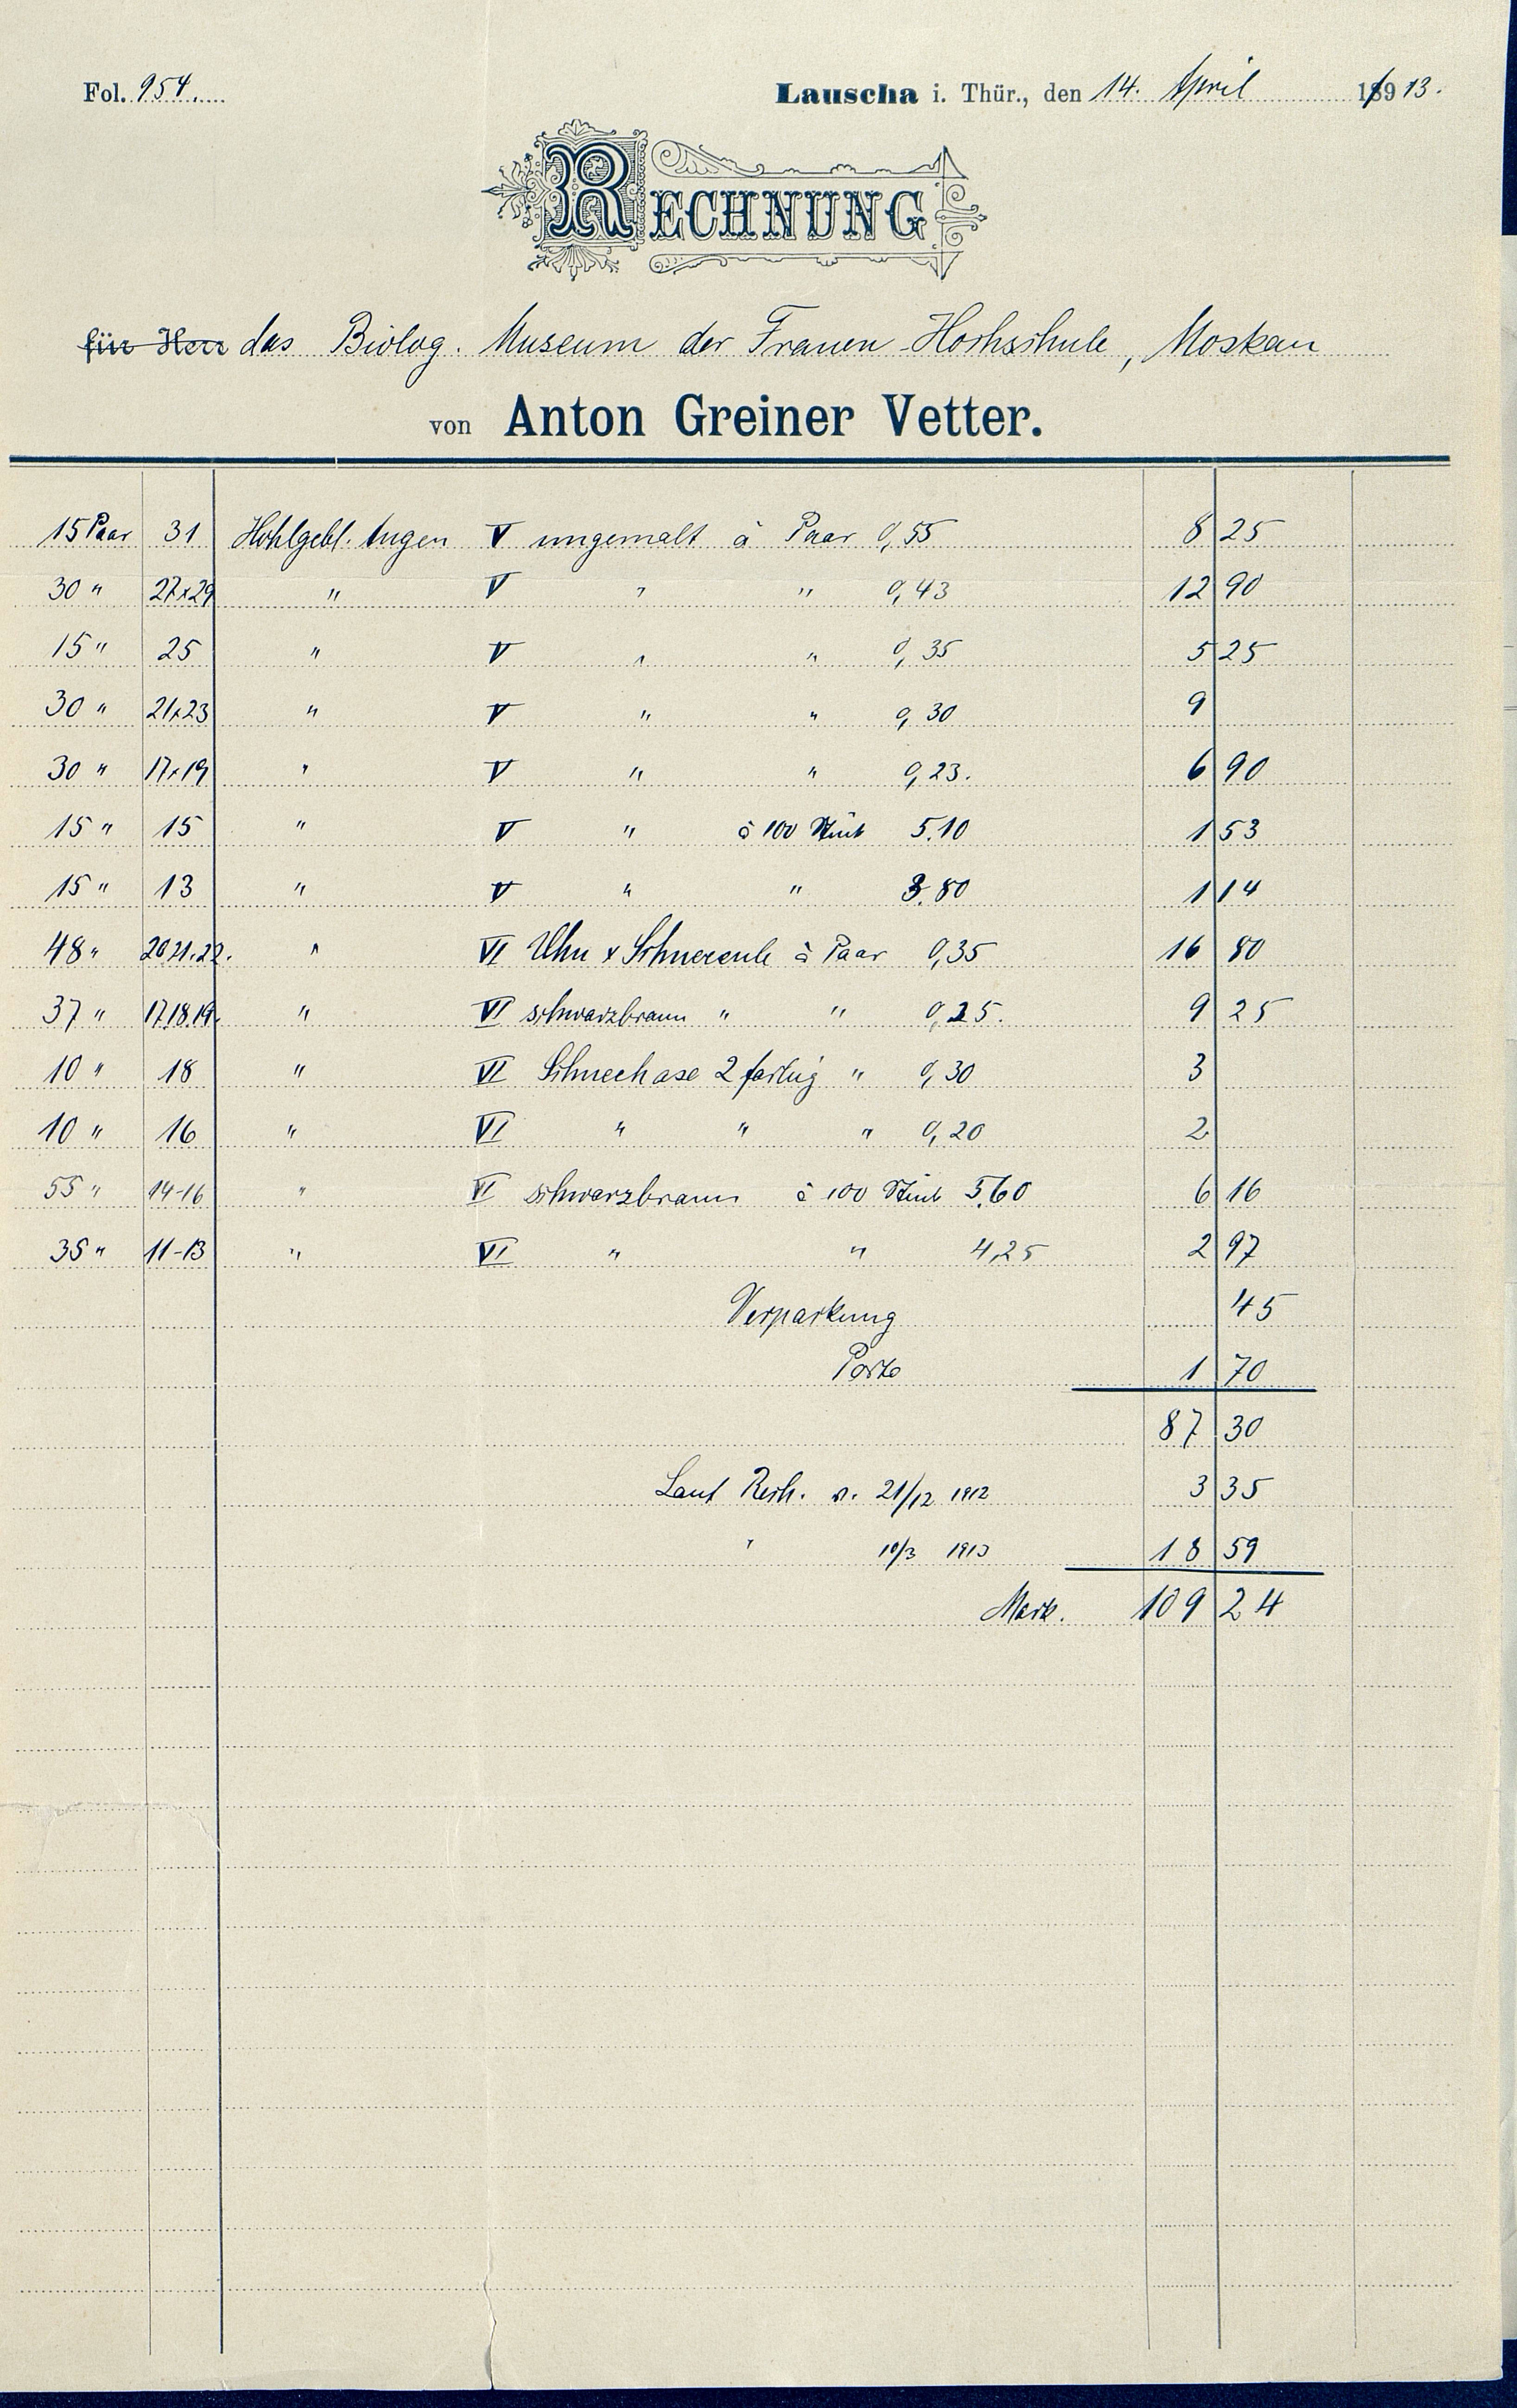 Fol. 954.
Lauscha i. Thür., den 14. April 18913.
RECHNUNG
für Herr das Biolog. Museum der Frauen-Hochschule, Moskau
von Anton Greiner Vetter.
15 Paar 31 Hohlgebl. Augen V ungemalt à Paar 0,55 8 25
30 " 27 x 29 " V " " 0,43 12 90
15 " 25 " V " " 0,35 5 25
30 " 21 x 23 " V " " 0,30 9
30 " 17 x 19 " V " " 0,23. 6 90
15 " 15 " V " à 100 Stück 5.10 1 53
15 " 13 " V " " 3.80 1 14
48 " 20 21.22. " VI Uhu x Schneeeule à Paar 0,35 16 80
37 " 17.18.19. " VI schwarzbraun " " 0,25. 9 25
10 " 18 " VI Schneehase 2 farbig " 0,30 3
10 " 16 " VI " " " 0,20 2
55 " 14-16 " VI schwarzbraun à 100 Stück 5,60 6 16
35 " 11-13 " VI " " 4,25 2 97
Verpackung 45
Porto 1 70
87 30
Laut Rech. v. 21/12 1912 3 35
" 10/3 1913 18 59
Mark. 109 24